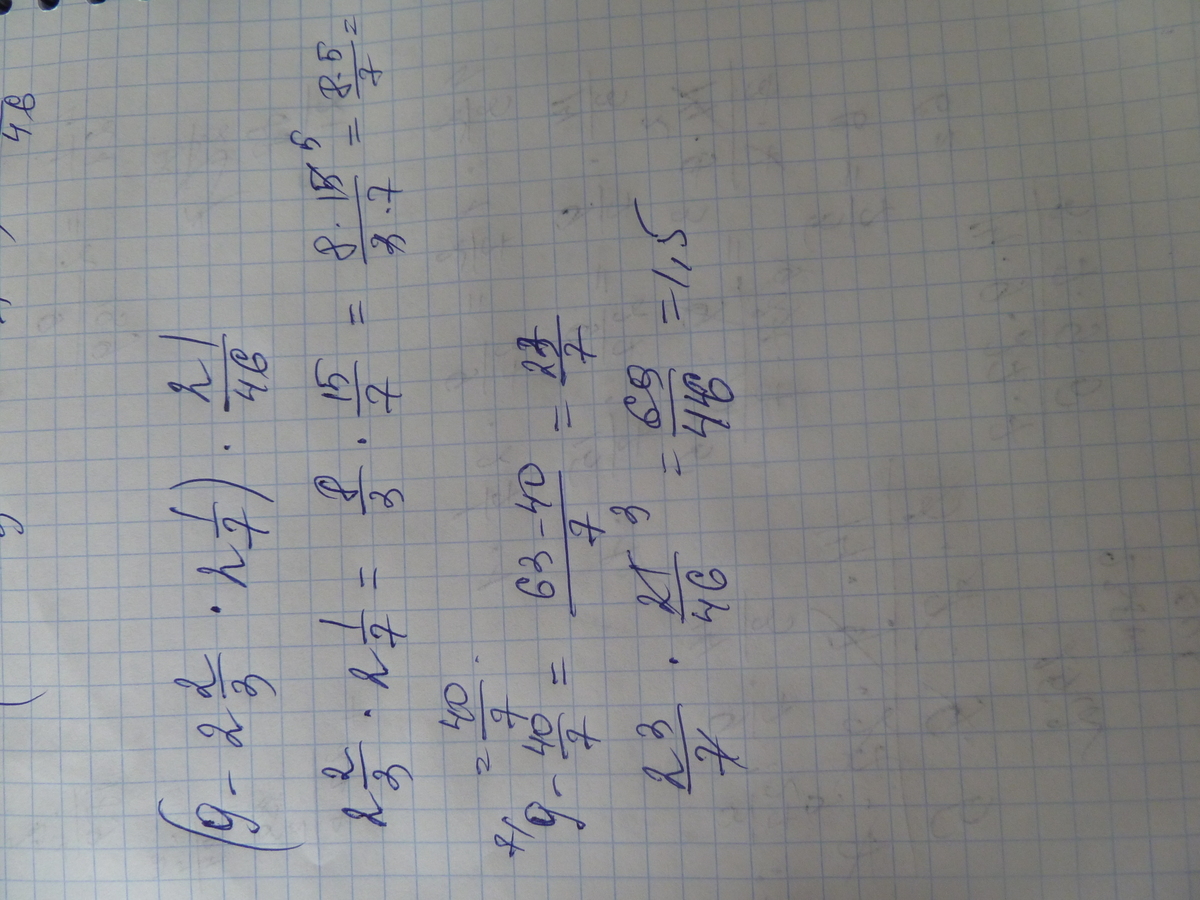 (9 - 2 2/3 · 2 1/7) · 21/46
2 2/3 · 2 1/7 = 8/3 · 15/7 = 8·15/3·7 5 = 8·5/7 =
= 40/7
7/ 9 - 40/7 = 63-40/7 = 23/7
23/7 · 21/46 3 = 69/46 = 1,5